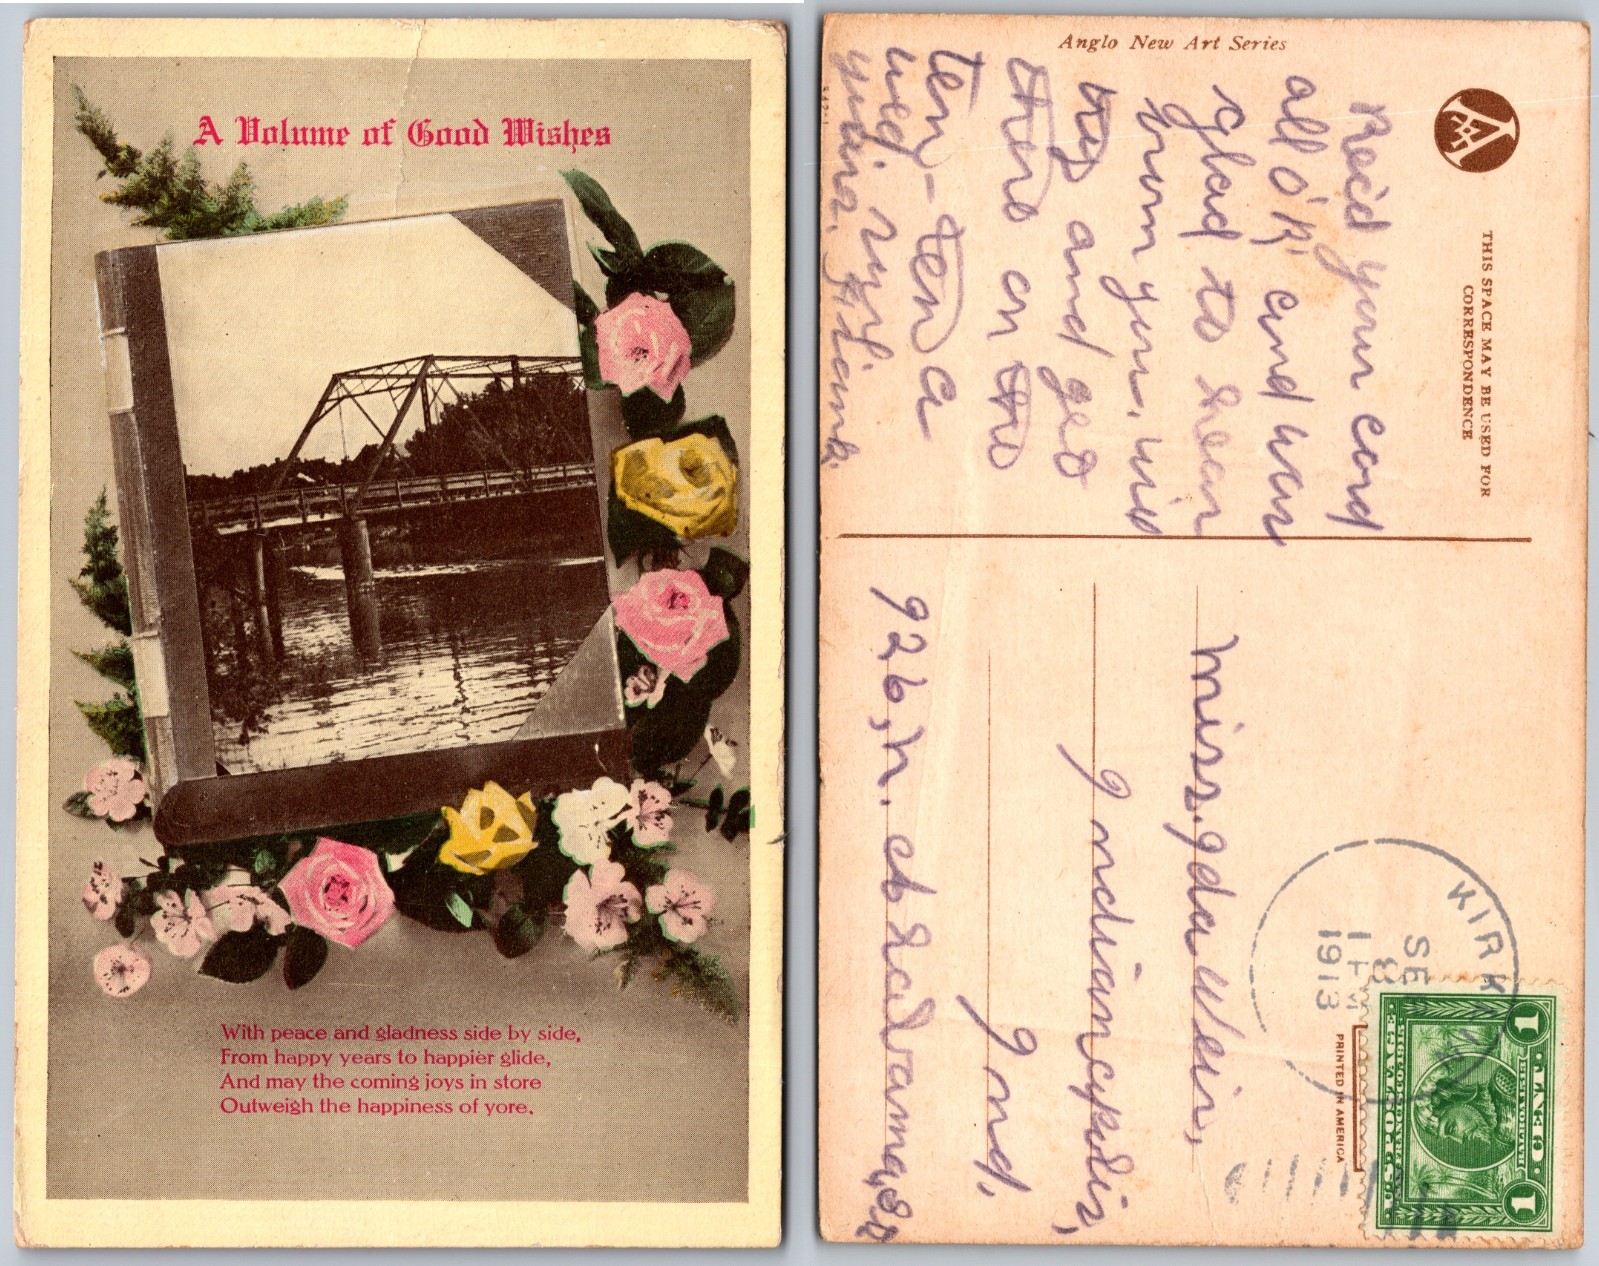 A Volume of Good Wishes
With peace and gladness side by side,
From happy years to happier glide,
And may the coming joys in store
Outweigh the happiness of yore.
Anglo New Art Series
THIS SPACE MAY BE USED FOR
CORRESPONDENCE
Rec'd your card
all O.K. and was
glad to hear
from you, will
try and get
there on the
ten-ten a
Miss. Ida Weir,
Indianapolis,
Ind,
926, N. Alabama, St
KIRK
SE
8
1913
PRINTED IN AMERICA
U.S. POSTAGE
SAN FRANCISCO 1915
BALBOA 1513
1 CENT 1